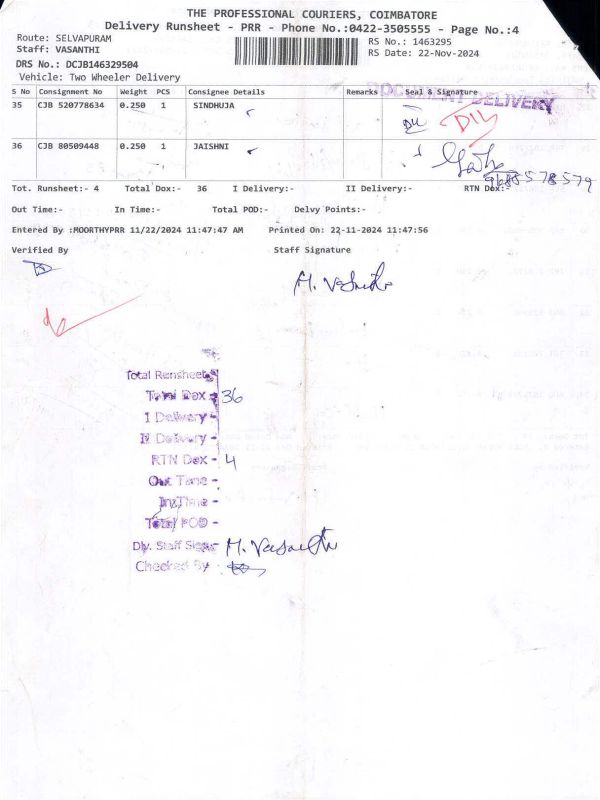 THE PROFESSIONAL COURIERS, COIMBATORE
Delivery Runsheet - PRR - Phone No.:0422-3505555 - Page No.:4
Route: SELVAPURAM
RS No.: 1463295
Staff: VASANTHI
RS Date: 22-Nov-2024
DRS No.: DCJB146329504
Vehicle: Two Wheeler Delivery
DOCUMENT DELIVERY
S No Consignment No Weight PCS Consignee Details Remarks Seal & Signature
35 CJB 520778634 0.250 1 SINDHUJA
36 CJB 80509448 0.250 1 JAISHNI
Tot. Runsheet:- 4 Total Dox:- 36 I Delivery:- II Delivery:- RTN Dox:-
Out Time:- In Time:- Total POD:- Delvy Points:-
Entered By :MOORTHYPRR 11/22/2024 11:47:47 AM Printed On: 22-11-2024 11:47:56
Verified By Staff Signature
M. Vasanthi
Total Runsheet -
Total Dox - 36
I Delivery -
II Delivery -
RTN Dox - 4
Out Time -
In Time -
Total POD -
Dly. Staff Sign - M. Vasanthi
Checked By